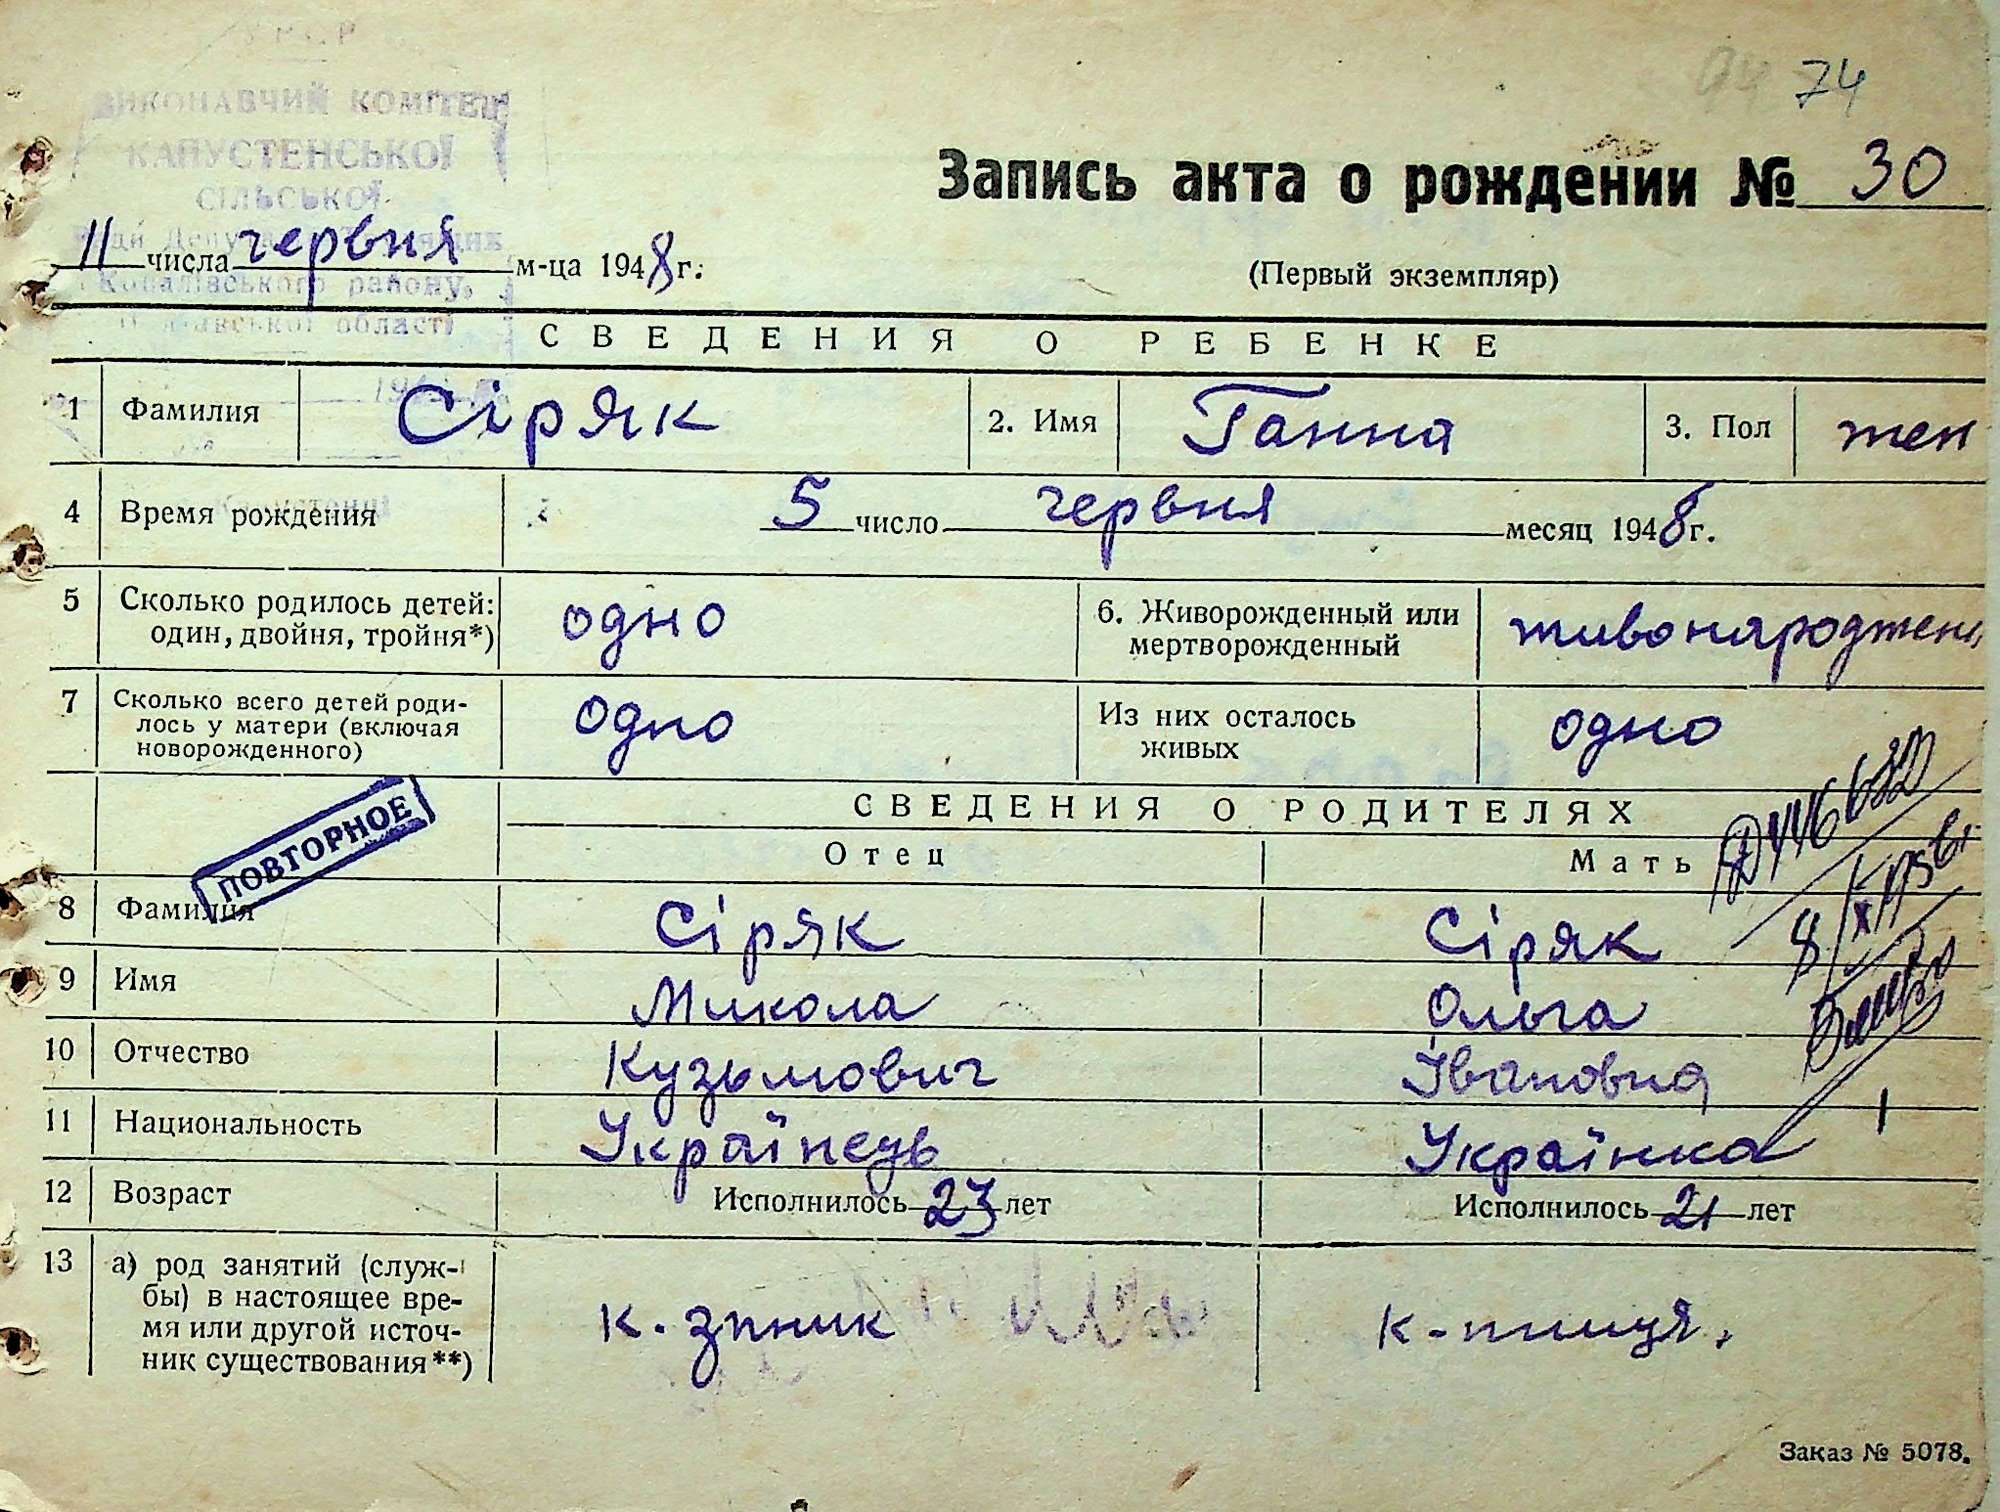 74
ВИКОНАВЧИЙ КОМІТЕТ
КАПУСТЕНСЬКОЇ
СІЛЬСЬКОЇ
Запись акта о рождении № 30
11 числа червня м-ца 1948 г.
(Первый экземпляр)
району,
області
СВЕДЕНИЯ О РЕБЕНКЕ
1 Фамилия Сіряк 2. Имя Ганна 3. Пол жен
4 Время рождения 5 число червня месяц 1948 г.
5 Сколько родилось детей: один, двойня, тройня*) одно 6. Живорожденный или мертворожденный живонароджен
7 Сколько всего детей родилось у матери (включая новорожденного) одно Из них осталось живых одно
ПОВТОРНОЕ
СВЕДЕНИЯ О РОДИТЕЛЯХ
Отец Мать
8 Фамилия Сіряк Сіряк
9 Имя Микола Ольга
10 Отчество Кузьмович Івановна
11 Национальность Українець Українка
12 Возраст Исполнилось 23 лет Исполнилось 21 лет
13 а) род занятий (служ-
бы) в настоящее вре-
мя или другой источ-
ник существования**) к-зпник к-пниця.
Заказ № 5078.